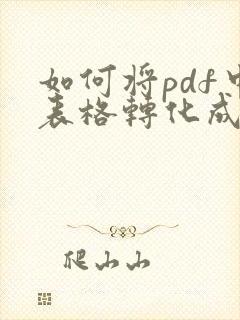 如何将pdf中
表格轉化成
爬山山